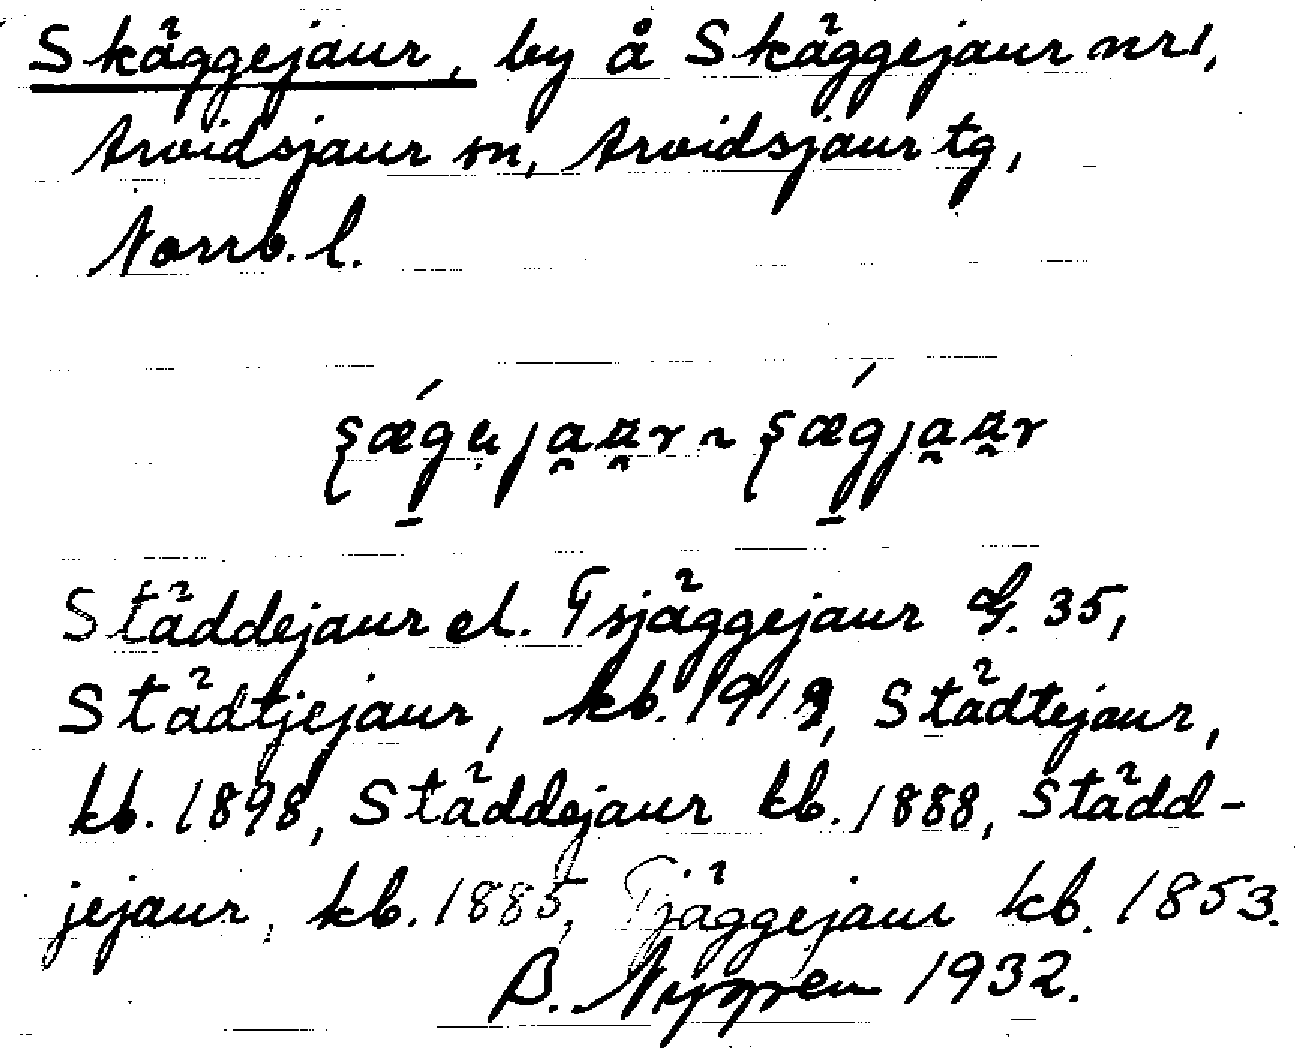 Skäggejaur, by å Skäggejaur nr 1,
Arvidsjaur sn, Arvidsjaur tg,
Norrb. l.
Städdejaur el. Tsjäggejaur G. 35,
Städtjejaur, kb. 1918, Städtejaur,
kb. 1898, Städdejaur kb. 1888, Städd-
jejaur, kb. 1885, Tjäggejaur kb. 1853.
B. Nygren 1932.